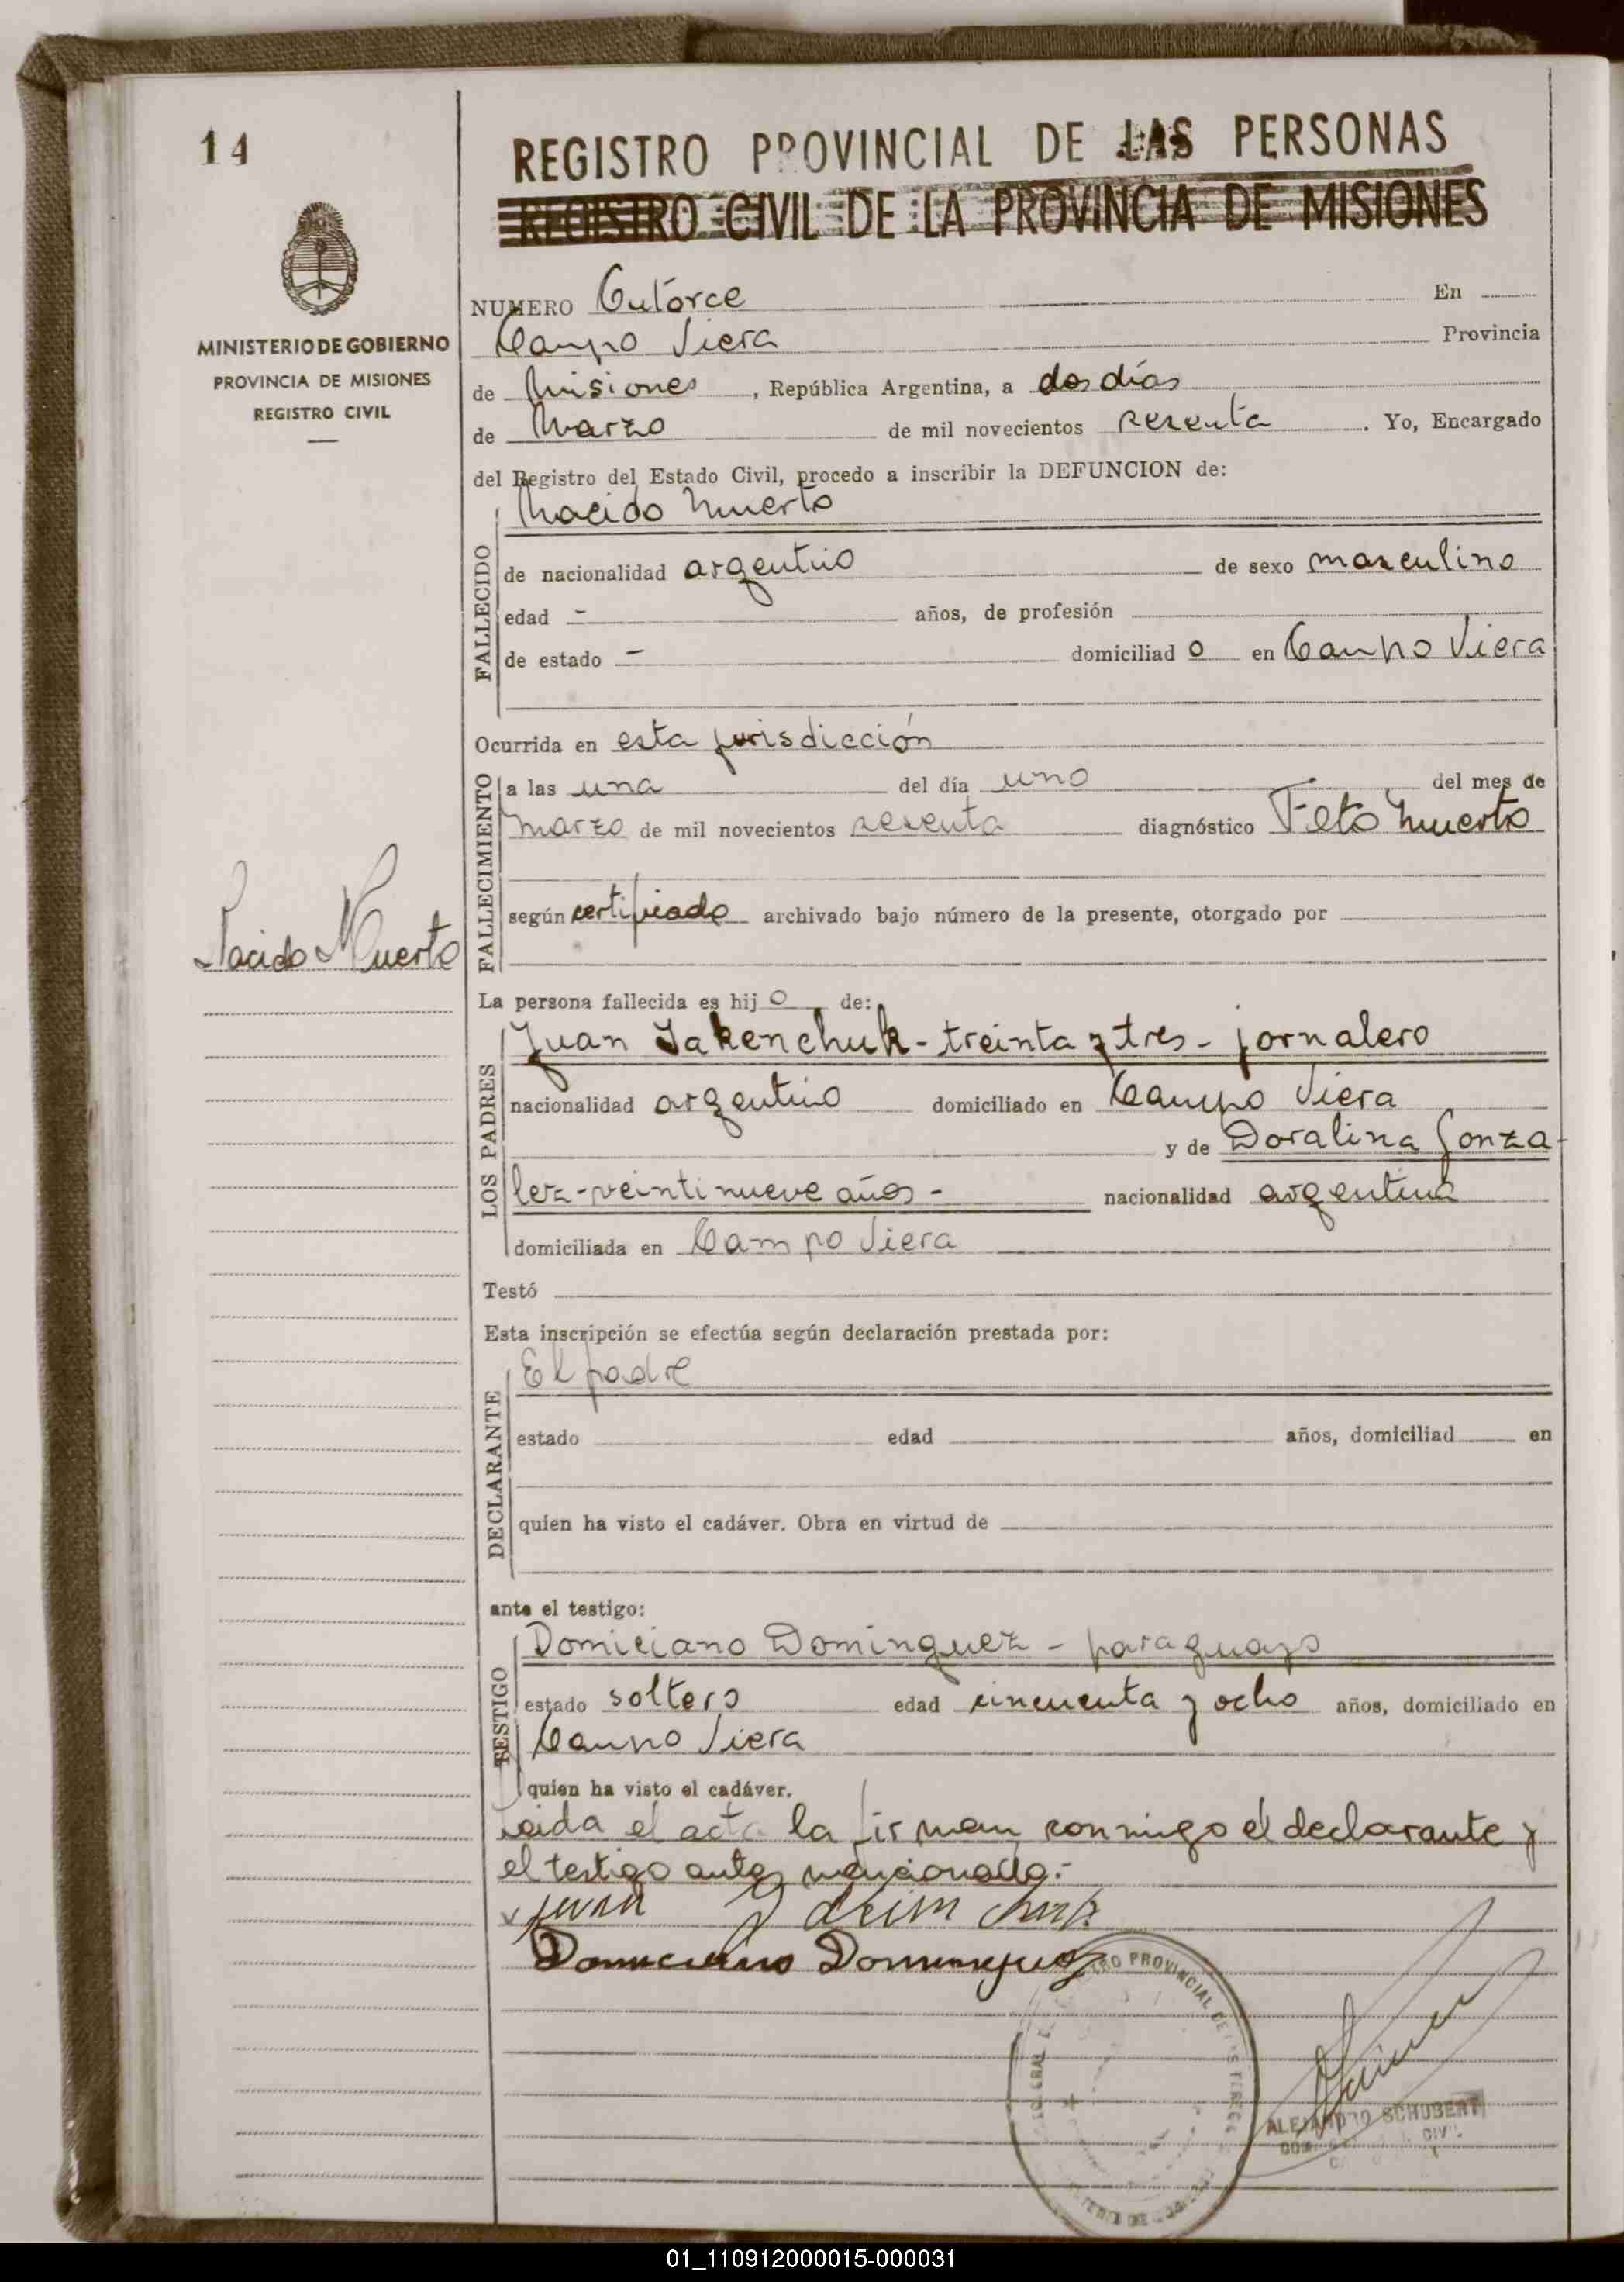 14
REGISTRO PROVINCIAL DE LAS PERSONAS
REGISTRO CIVIL DE LA PROVINCIA DE MISIONES
MINISTERIO DE GOBIERNO
PROVINCIA DE MISIONES
REGISTRO CIVIL
NUMERO Catorce En
Campo Viera Provincia
de Misiones, República Argentina, a dos días
de Marzo de mil novecientos sesenta. Yo, Encargado
del Registro del Estado Civil, procedo a inscribir la DEFUNCION de:
FALLECIDO
Nacido Muerto
de nacionalidad argentino de sexo masculino
edad - años, de profesión
de estado - domiciliad o en Campo Viera
Ocurrida en esta jurisdicción
FALLECIMIENTO
a las una del día uno del mes de
marzo de mil novecientos sesenta diagnóstico Feto Muerto
según certificado archivado bajo número de la presente, otorgado por
Nacido Muerto
La persona fallecida es hij o de:
LOS PADRES
Juan Jakenchuk - treinta y tres - jornalero
nacionalidad argentino domiciliado en Campo Viera
y de Doralina Gonza-
lez - veintinueve años - nacionalidad argentina
domiciliada en Campo Viera
Testó
Esta inscripción se efectúa según declaración prestada por:
DECLARANTE
El padre
estado edad años, domiciliad en
quien ha visto el cadáver. Obra en virtud de
ante el testigo:
TESTIGO
Domiciano Dominguez - paraguayo
estado soltero edad cincuenta y ocho años, domiciliado en
Campo Viera
quien ha visto el cadáver.
Leida el acta la firman conmigo el declarante y
el testigo antes mencionado.-
Juan
Domiciano Dominguez
REGISTRO PROVINCIAL DE LAS PERSONAS
ALEJANDRO SCHUBERT
01_110912000015-000031